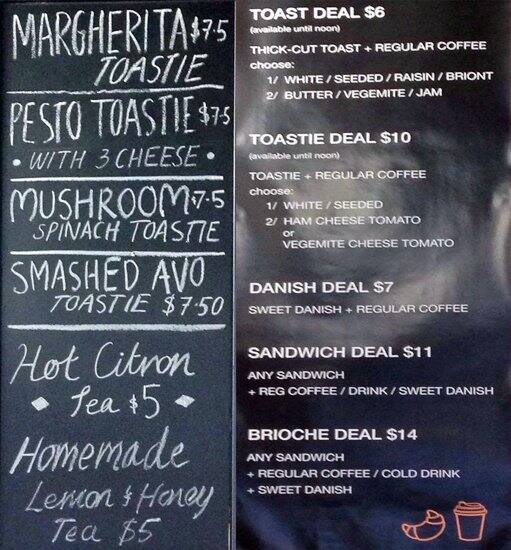 MARGHERITA $7.5
TOASTIE
PESTO TOASTIE $7.5
• WITH 3 CHEESE •
MUSHROOM 7.5
SPINACH TOASTIE
SMASHED AVO
TOASTIE $7.50
Hot Citron
Tea $5
Homemade
Lemon & Honey
Tea $5
TOAST DEAL $6
(available until noon)
THICK-CUT TOAST + REGULAR COFFEE
choose:
1/ WHITE / SEEDED / RAISIN / BRIONT
2/ BUTTER / VEGEMITE / JAM
TOASTIE DEAL $10
(available until noon)
TOASTIE + REGULAR COFFEE
choose:
1/ WHITE / SEEDED
2/ HAM CHEESE TOMATO
or
VEGEMITE CHEESE TOMATO
DANISH DEAL $7
SWEET DANISH + REGULAR COFFEE
SANDWICH DEAL $11
ANY SANDWICH
+ REG COFFEE / DRINK / SWEET DANISH
BRIOCHE DEAL $14
ANY SANDWICH
+ REGULAR COFFEE / COLD DRINK
+ SWEET DANISH